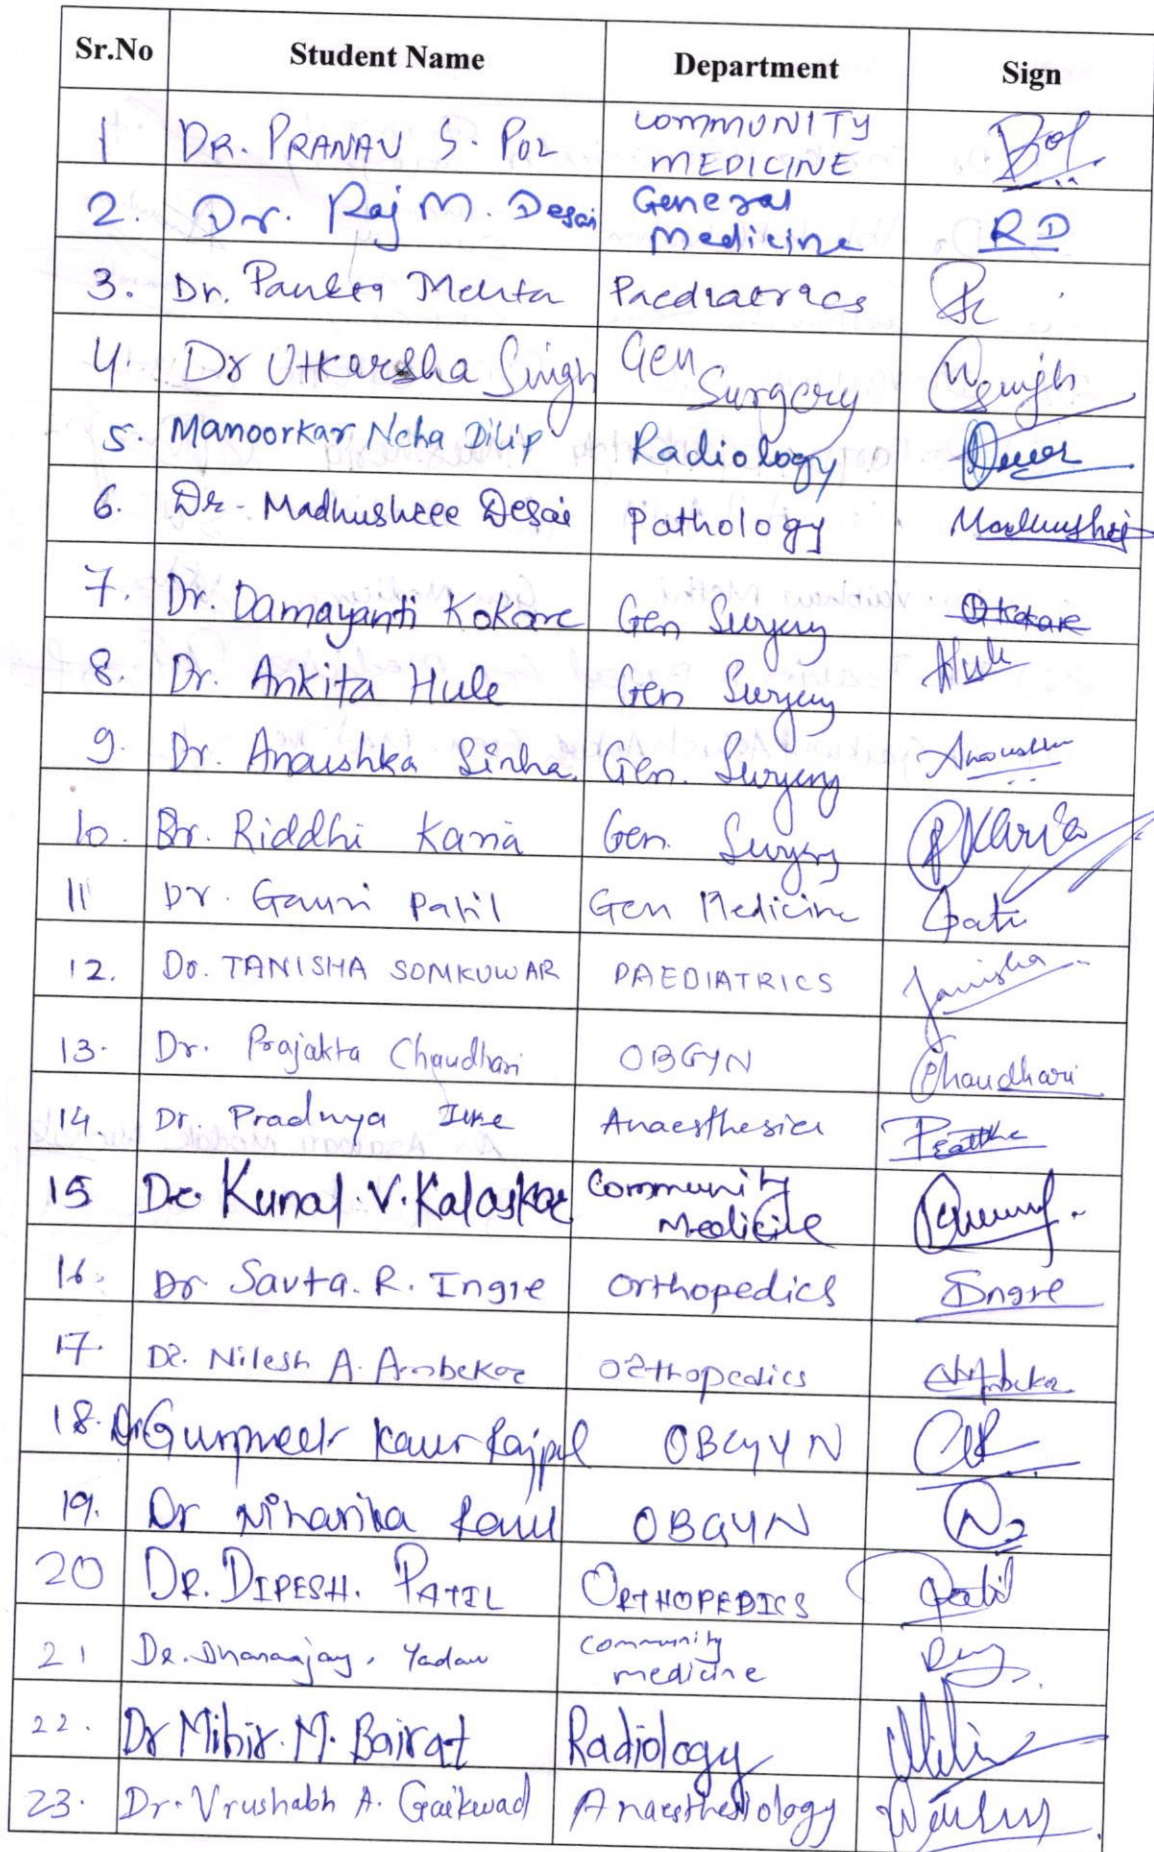 Sr.No Student Name Department Sign
1 DR. PRANAV S. POL COMMUNITY MEDICINE Pol.
2. Dr. Raj M. Desai General Medicine RD
3. Dr. Mehta Paediatrics
4. Dr Utkarsha Singh Gen Surgery Singh
5. Manoorkar Neha Dilip Radiology
6. Dr. Madhushree Desai Pathology Madhushree
7. Dr. Damayanti Kokare Gen Surgery Kokare
8. Dr. Ankita Hule Gen Surgery Hule
9. Dr. Anoushka Sinha Gen. Surgery Anoushka
10. Dr. Riddhi Karia Gen. Surgery RKaria
11 Dr. Gauri Patil Gen Medicine
12. Dr. TANISHA SOMKUWAR PAEDIATRICS Tanisha
13. Dr. Prajakta Chaudhari OBGYN Chaudhari
14. Dr. Pradnya Anaesthesia
15 Dr. Kunal. V. Kalaskar Community Medicine
16. Dr Savta. R. Ingle Orthopedics Ingle
17. Dr. Nilesh A. Ambekar Orthopedics Ambekar
18. Dr Gurpreet Kaur Rajpal OBGYN
19. Dr Niharika OBGYN
20 DR. DIPESH. PATIL ORTHOPEDICS Patil
21 Dr. Dhananjay. Yadav Community medicine
22. Dr Mihir. M. Bairat Radiology
23. Dr. Vrushabh A. Gaikwad Anaesthesiology